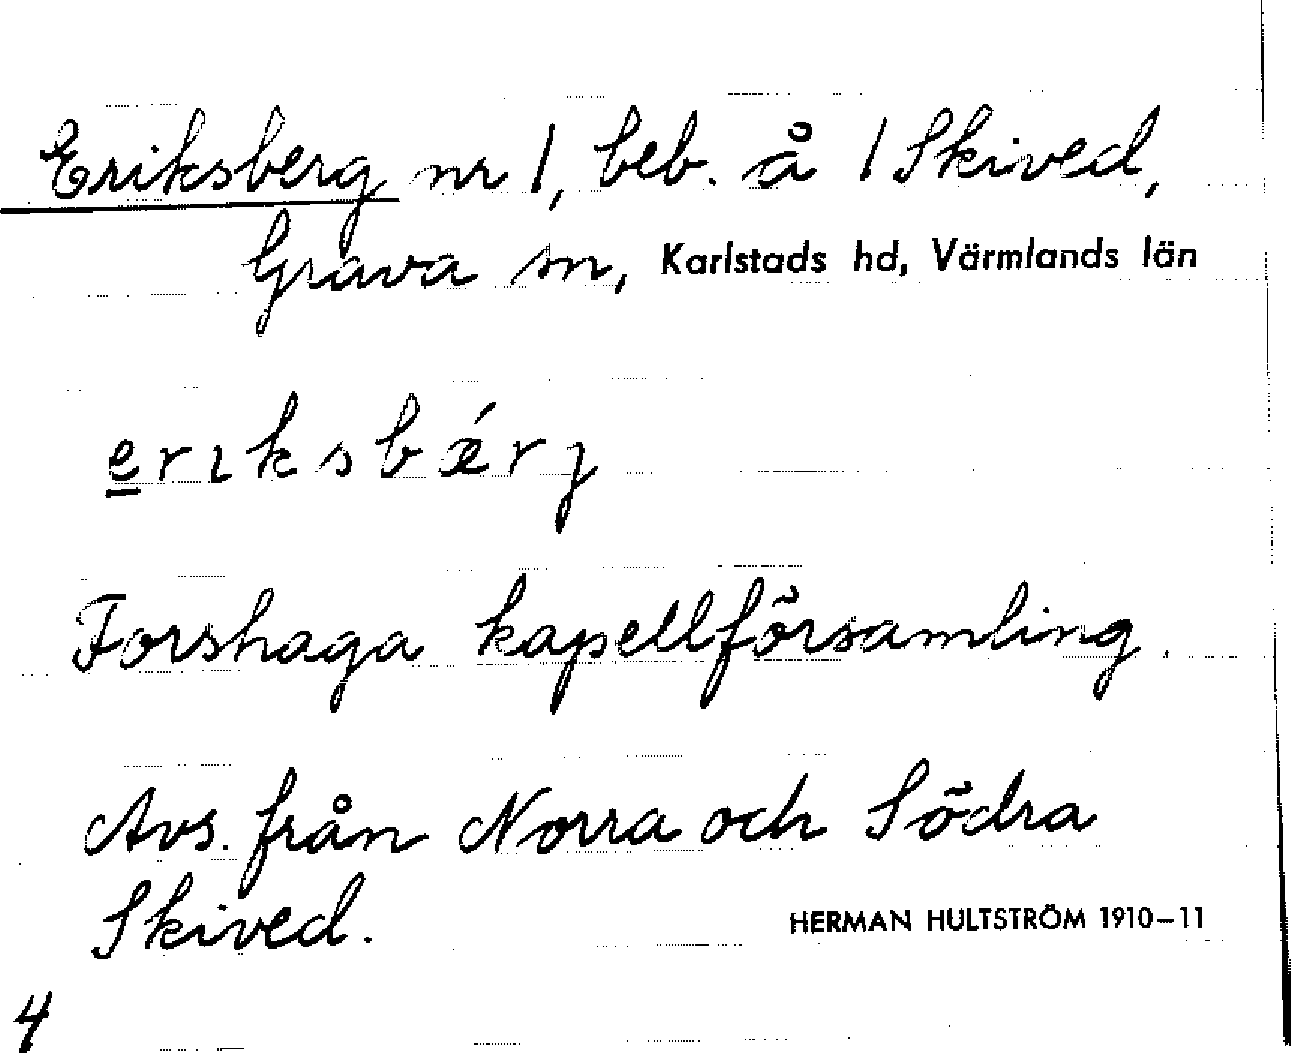 Eriksberg nr 1, beb. å 1 Skived,
Grava sn, Karlstads hd, Värmlands län
erıksbǽrj
Forshaga kapellförsamling.
Avs. från Norra och Södra
Skived.
HERMAN HULTSTRÖM 1910–11
4